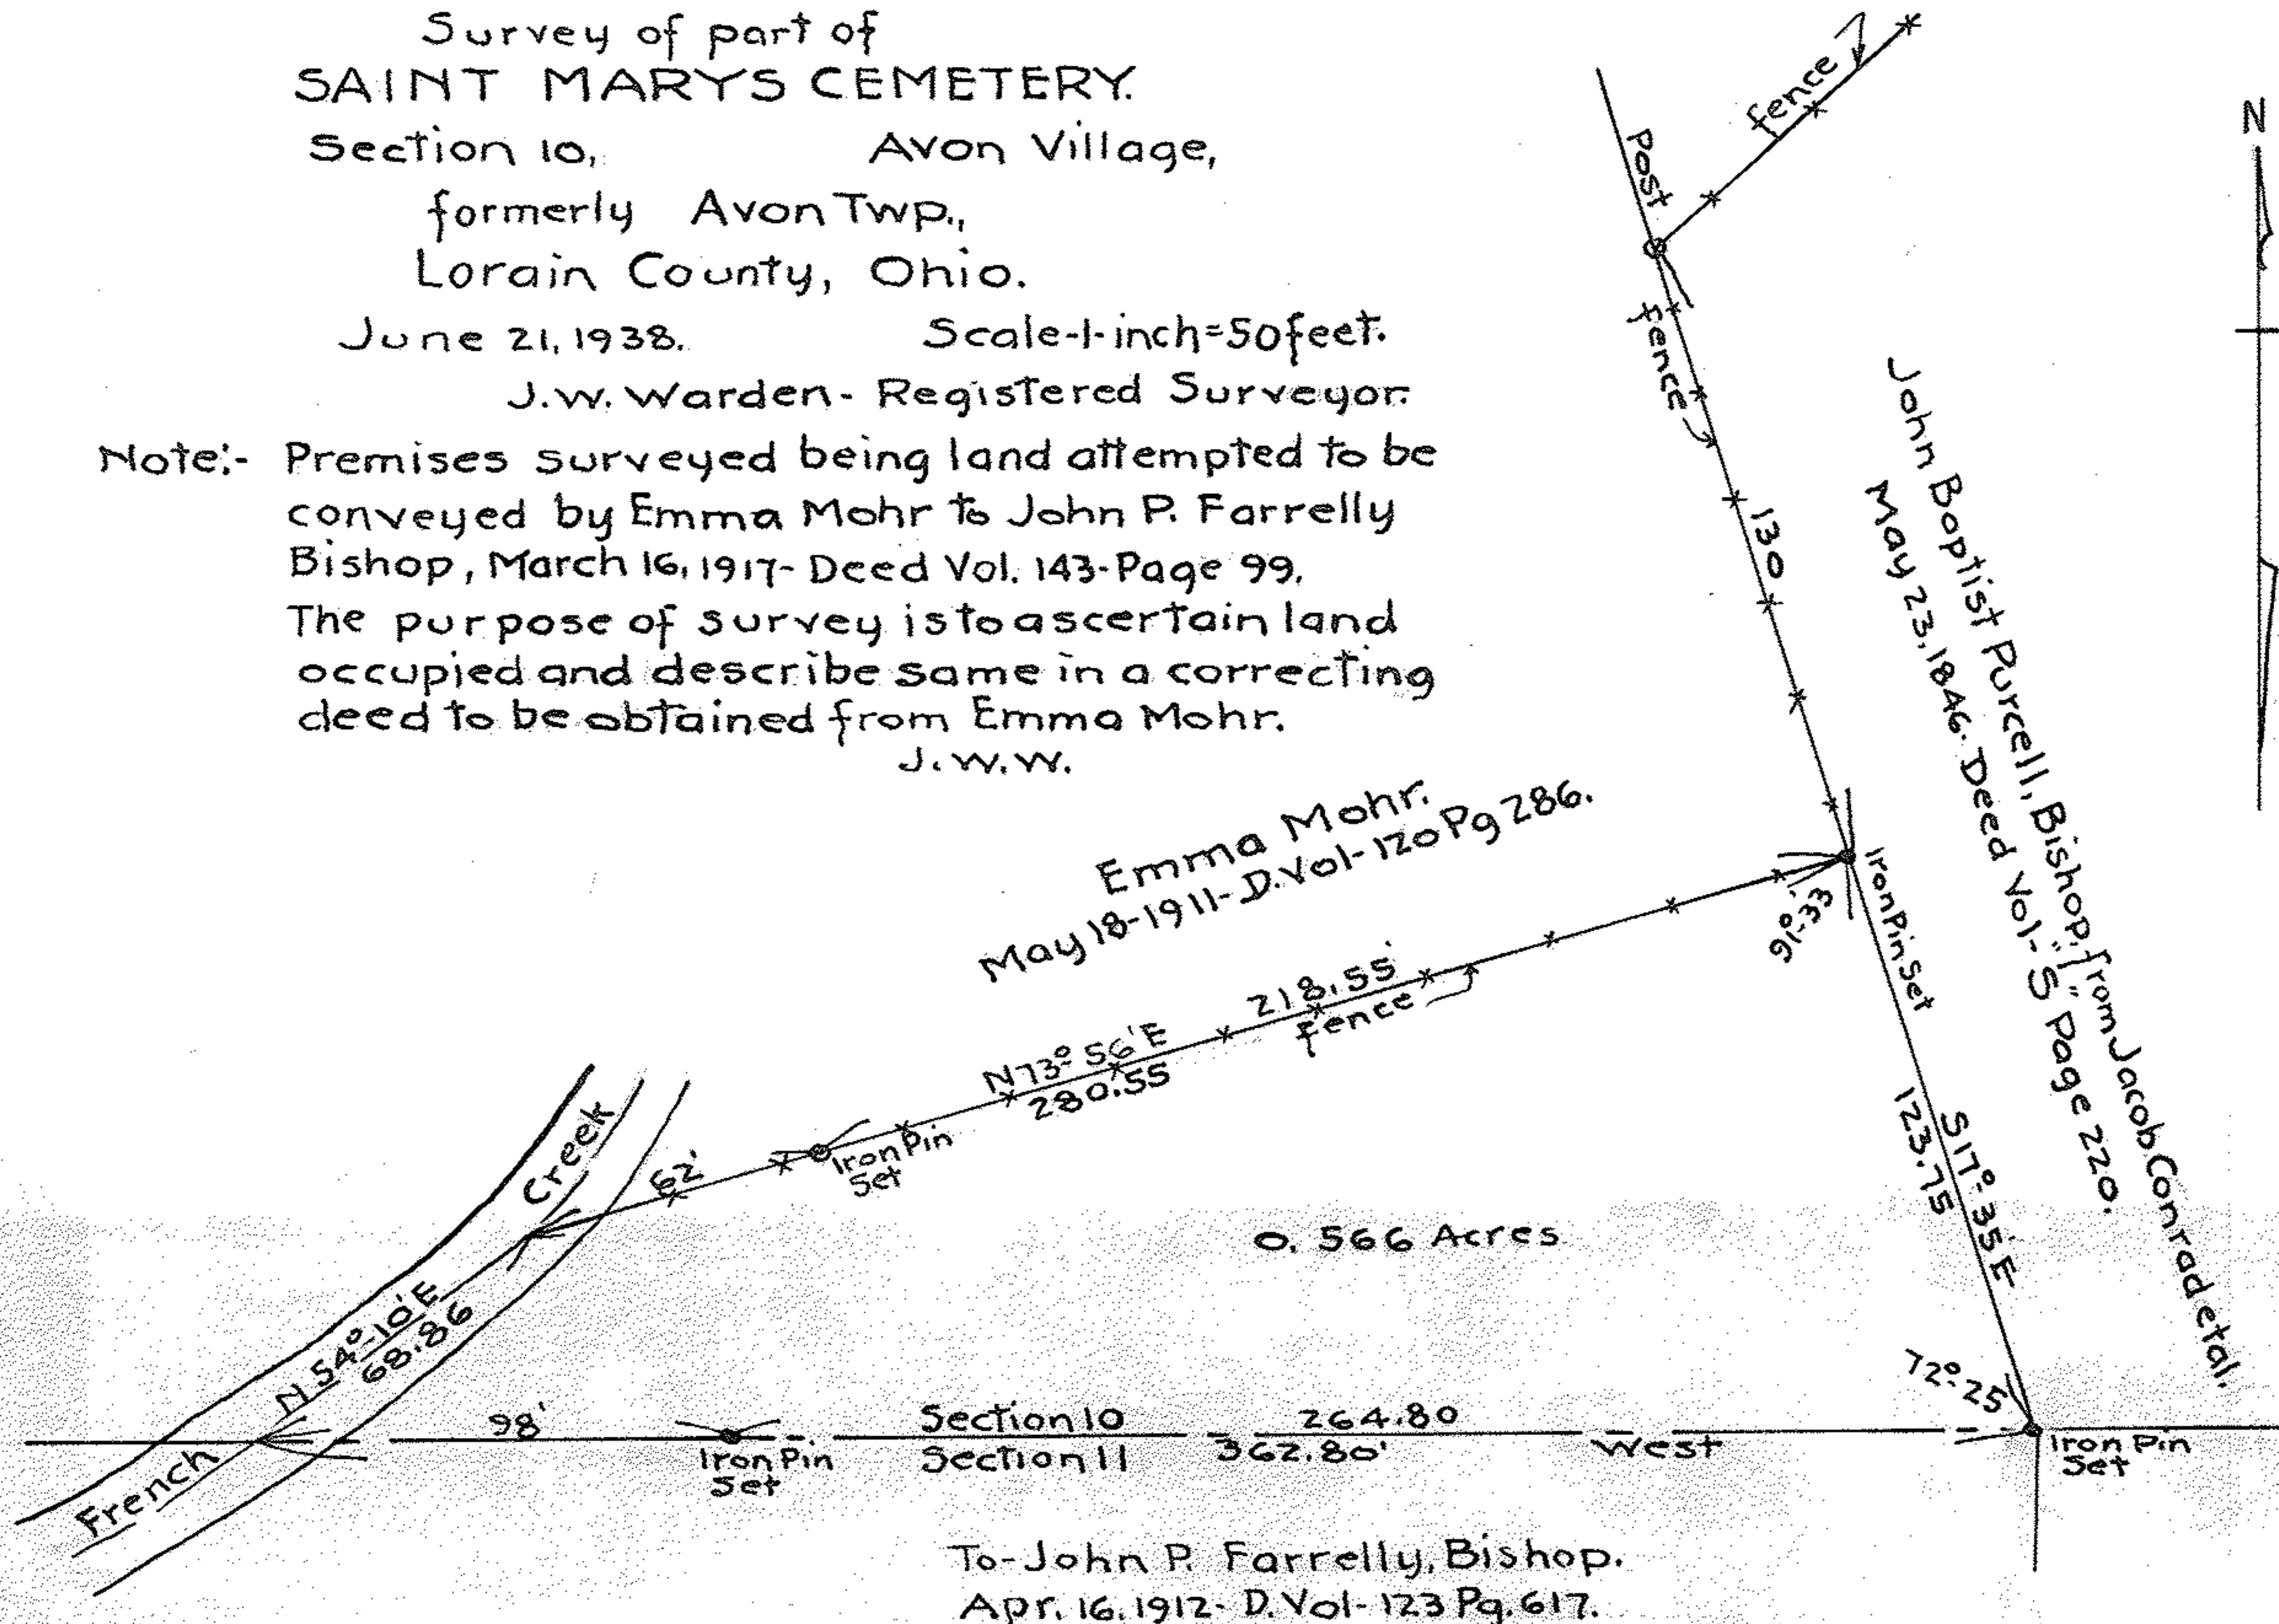 Survey of part of
SAINT MARYS CEMETERY.
Section 10, Avon Village,
formerly Avon Twp.,
Lorain County, Ohio.
June 21, 1938. Scale-1-inch=50feet.
J.W. Warden- Registered Surveyor.
Note:- Premises surveyed being land attempted to be
conveyed by Emma Mohr to John P. Farrelly
Bishop, March 16, 1917- Deed Vol. 143-Page 99.
The purpose of survey is to ascertain land
occupied and describe same in a correcting
deed to be obtained from Emma Mohr.
J.W.W.
fence
Post
fence
130
N
John Baptist Purcell, Bishop, from Jacob Conrad etal.
May 23, 1846. Deed Vol-"S" Page 220.
Emma Mohr.
May 18-1911-D.Vol-120 Pg 286.
91°-33'
Iron Pin Set
218.55'
fence
N73°56'E
280.55
Iron Pin
Set
62'
Creek
S17°-35'E
123.75
0.566 Acres
N54°-10'E
68.86
French
98'
Iron Pin
Set
Section 10
Section 11
264.80
362.80'
West
72°-25'
Iron Pin
Set
To-John P. Farrelly, Bishop.
Apr. 16, 1912- D.Vol-123 Pg. 617.